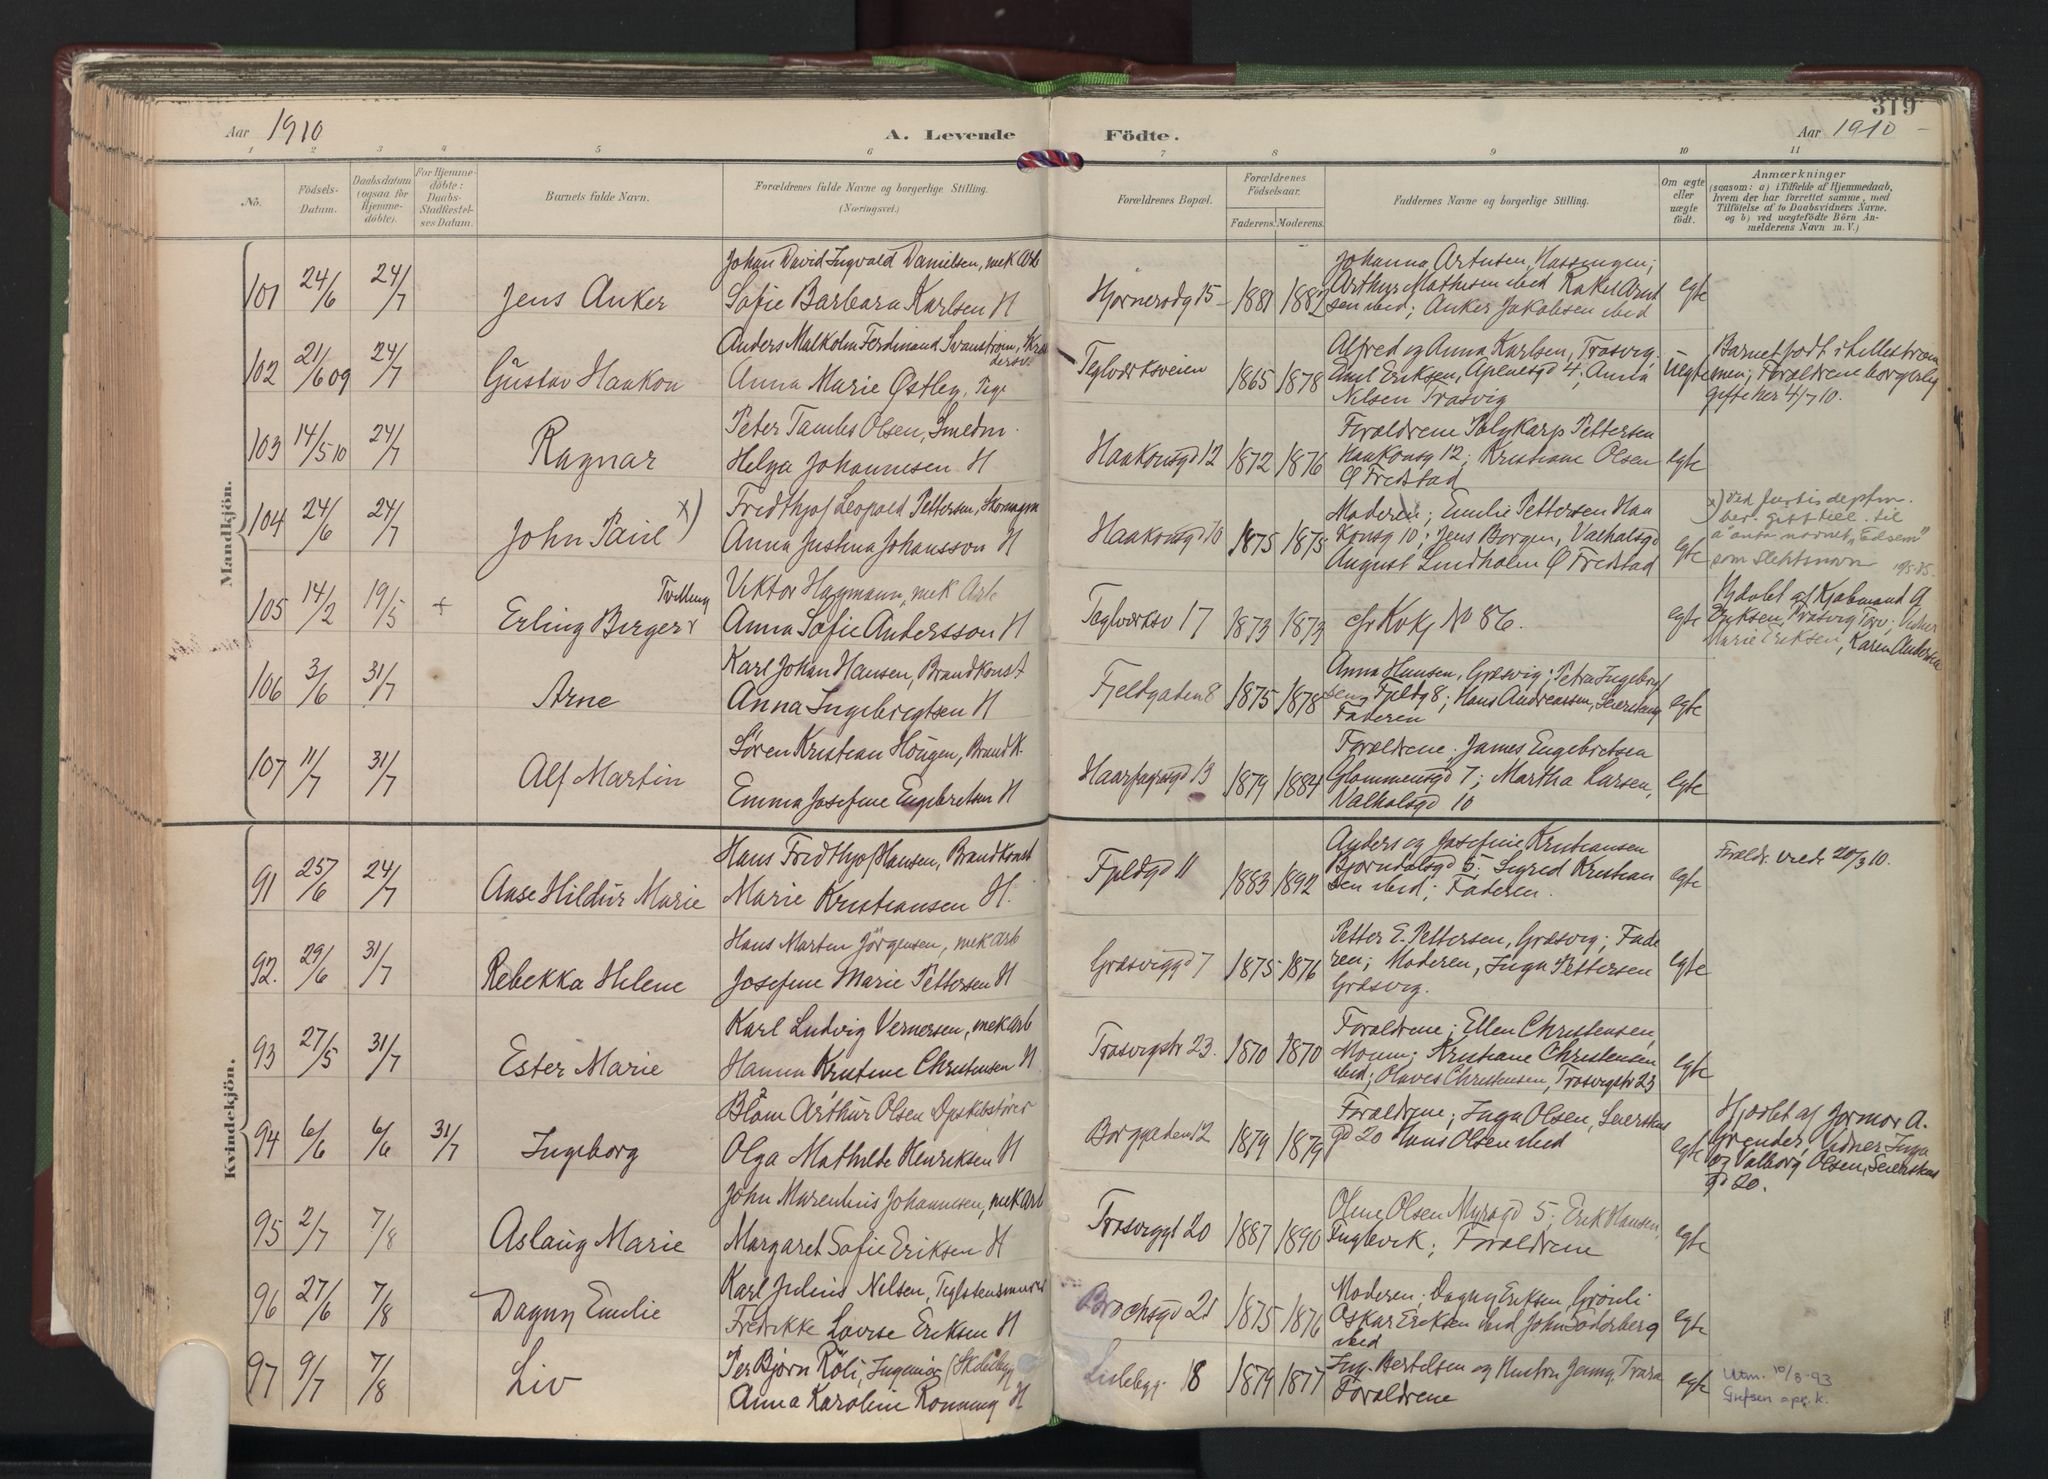 319
Aar 1910
A. Levende Födte.
Aar 1910
1 2 3 4 5 6 7 8 9 10 11
No.
Födsels-
Datum.
Daabsdatum
(ogsaa for
Hjemme-
döbte).
For Hjemme-
döbte:
Daabs-
Stadfæstel-
ses Datum.
Barnets fulde Navn.
Forældrenes fulde Navne og borgerlige Stilling.
(Næringsvei.)
Forældrenes Bopæl.
Forældrenes
Födselsaar.
Faderens. Moderens.
Faddernes Navne og borgerlige Stilling.
Om ægte
eller
uægte
födt.
Anmærkninger
(saasom: a) i Tilfælde af Hjemmedaab,
hvem der har forrettet samme, med
Tilföielse af to Daabsvidners Navne,
og b) ved uægtefödte Börn An-
melderens Navn m. V.)
Mandkjön.
101 24/6 24/7 Jens Anker
Johan David Ingvald Danielsen, mek Arb
Sofie Barbara Karlsen H
Hjørnerødg 15 1881 1882
Johanna Artusen, Hassingen;
Arthur Mathisen ibid Rakel Arnt
sen ibid; Anker Jakobsen ibid
egte
102 21/6 09 24/7 Gustav Haakon
Anders Malkolm Ferdinand Svanstrøm, Skræ
dersv
Anna Marie Østley, Pige
Teglverksveien 1865 1878
Alfred og Anna Karlsen, Trosvig.
Emil Eriksen, Apenesgd 4; Anna
Nilsen Trosvig
uegte
Barnet født i Lillestrøm
men; Forældrene borgerlig
gifte her 4/7 10.
103 14/5 10 24/7 Ragnar
Peter Tambs Olsen, Smedm.
Helga Johannesen H
Haakonsgd 12 1872 1876
Forældrene Polykarp Pettersen
Haakonsg 12; Kristiane Olsen
Ø Fredstad
egte
104 24/6 24/7 John Paul x)
Fredthjof Leopold Pettersen, Skomagerm
Anna Justina Johansson H
Haakonsgd 10 1875 1875
Moderen; Emilie Pettersen Haa
konsg 10; Jens Borgen, Valhalsgd
August Lindholm Ø Fredstad
egte
x) ved Justisdeptm.
bev. gitt till. til
å anta navnet "Edsem"
som slektsnavn
105 14/2 19/5 + Erling Birger Tvilling
Viktor Hagmann, mek Arb
Anna Sofie Andersson H
Teglverksv 17 1873 1873
cfr Kvkj No 86.
egte
Hjdøbt af Kjøbmand A
Eriksen, Trosvig Torv; Vidner
Marie Eriksen, Karen Andersen
106 3/6 31/7 Arne
Karl Johan Hansen, Brandkonst
Anna Ingebrigtsen H
Fjeldgaden 8 1875 1878
Anna Hansen, Græsvig; Petra Ingebrigt
sen, Fjeldg 8; Hans Andreassen, Seierstang
Faderen
egte
107 11/7 31/7 Alf Martin
Søren Kristian Haugen, Brandk.
Emma Josefine Engebretsen H
Haarfagresgd 13 1879 1884
Forældrene; James Engebretsen
Glommensgd 7; Martha Larsen,
Valhalsgd 10
egte
Kvindekjön.
91 25/6 24/7 Aase Hildur Marie
Hans Fredthjof Hansen, Brandkonst
Marie Kristiansen H.
Fjeldgd 11 1883 1892
Anders og Josefine Kristiansen
Bjørndalsgd 5; Sigrid Kristian
sen ibid; Faderen.
egte
Foreldr. viede 20/3 10.
92. 29/6 31/7 Rebekka Helene
Hans Marten Jörgensen, mek arb
Josefine Marie Pettersen H
Græsviggd 7 1875 1876
Petter E. Pettersen, Græsvig; Fade
ren; Moderen, Inga Pettersen
Græsvig.
egte
93 27/5 31/7 Ester Marie
Karl Ludvig Vernersen, mek arb
Hanna Kristine Christensen H
Trosvigstr 23. 1870 1870
Forældrene; Ellen Christensen,
Moum; Kristiane Christensen
ibid; Olaves Christensen, Trosvigstr 23
egte
94 6/6 6/6 31/7 Ingeborg
Blom Arthur Olsen Dpskibsfører
Olga Mathilde Henriksen H
Borggaden 12 1879 1879
Forældrene; Inga Olsen, Seierstens
gd 20 Hans Olsen ibid
egte
Hjdøbt af Jormor A.
Grander, Vidner Inga
og Valborg Olsen, Seierstens
gd 20.
95 2/7 7/8 Aslaug Marie
John Marenius Johannesen, mek arb
Margaret Sofie Eriksen H
Trosviggt 20 1887 1890
Oline Olsen Myragd 5; Erik Hansen,
Fuglevik; Forældrene
egte
96 27/6 7/8 Dagny Emilie
Karl Julius Nilsen, Teglstensmurer
Fredrikke Lovise Eriksen H
Brochsgd 21 1875 1876
Moderen; Dagny Eriksen, Grönli
Oskar Eriksen ibid John Söderberg
ibid
egte
97 9/7 7/8 Liv
Per Bjørn Röli, Ingeniör (Skibsbyg
Anna Karoline Rønning H
Lislebyg. 18 1879 1877
Ing. Bertelsen og Hustru Jenny, Trara
Forældrene
egte
Utm. 10/8-93
Grefsen apr. k.